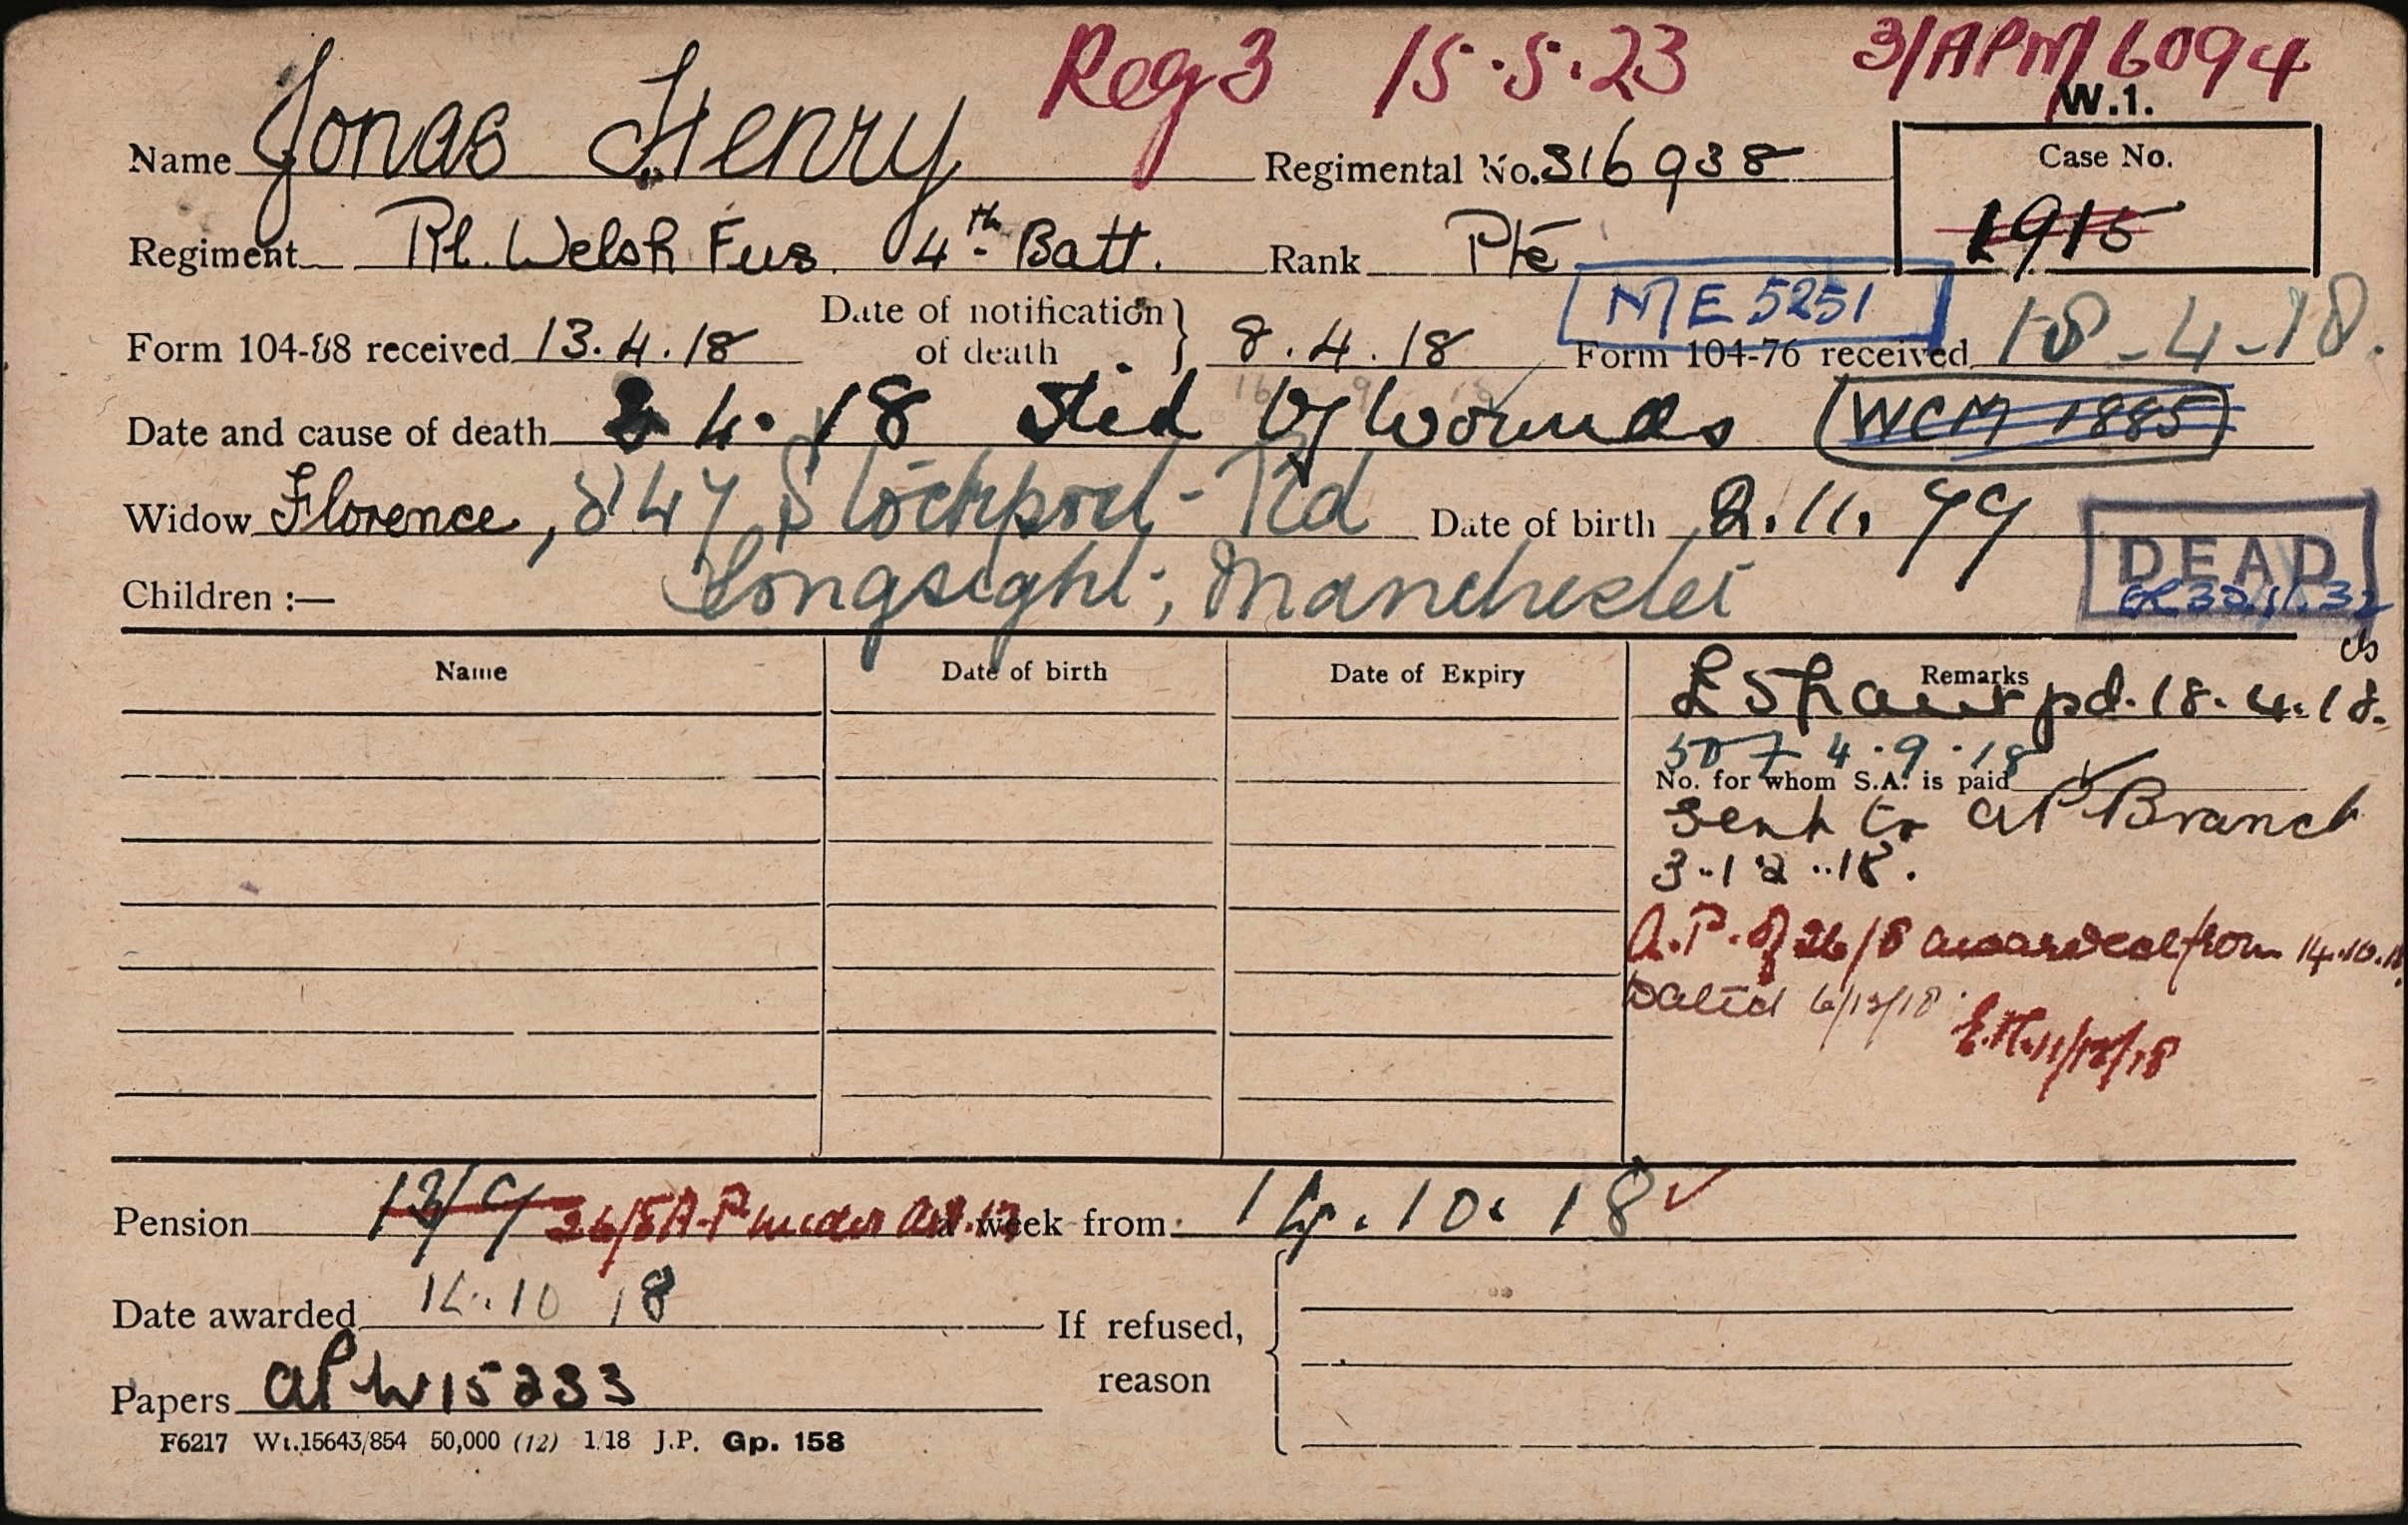 Reg 3 15.5.23 3/APM/6094
W.1.
Name Jonas Henry Regimental No. 316938 Case No.
1915
Regiment Rl. Welsh Fus. 4th Batt. Rank Pte
M/E 5251
Form 104-88 received 13.4.18 Date of notification of death } 8.4.18 Form 104-76 received 18-4-18.
Date and cause of death 4.18 died of wounds WCM 1885
Widow Florence, 847 Stockport Rd Date of birth 2.11.79
Longsight, Manchester
Children :—
DEAD
Name Date of birth Date of Expiry Remarks
pd. 18.4.18.
50 4.9.18
No. for whom S.A. is paid
Sent to AP Branch
3.12.18.
A.P. of 26/8 awarded from 14.10.18
Dated 6/12/18
11/12/18
Pension 13/9 26/8 A.P. under Art. a week from 14.10.18
Date awarded 14.10 18
If refused, reason
Papers AP W15233
F6217 Wt.15643/854 50,000 (12) 1/18 J.P. Gp. 158